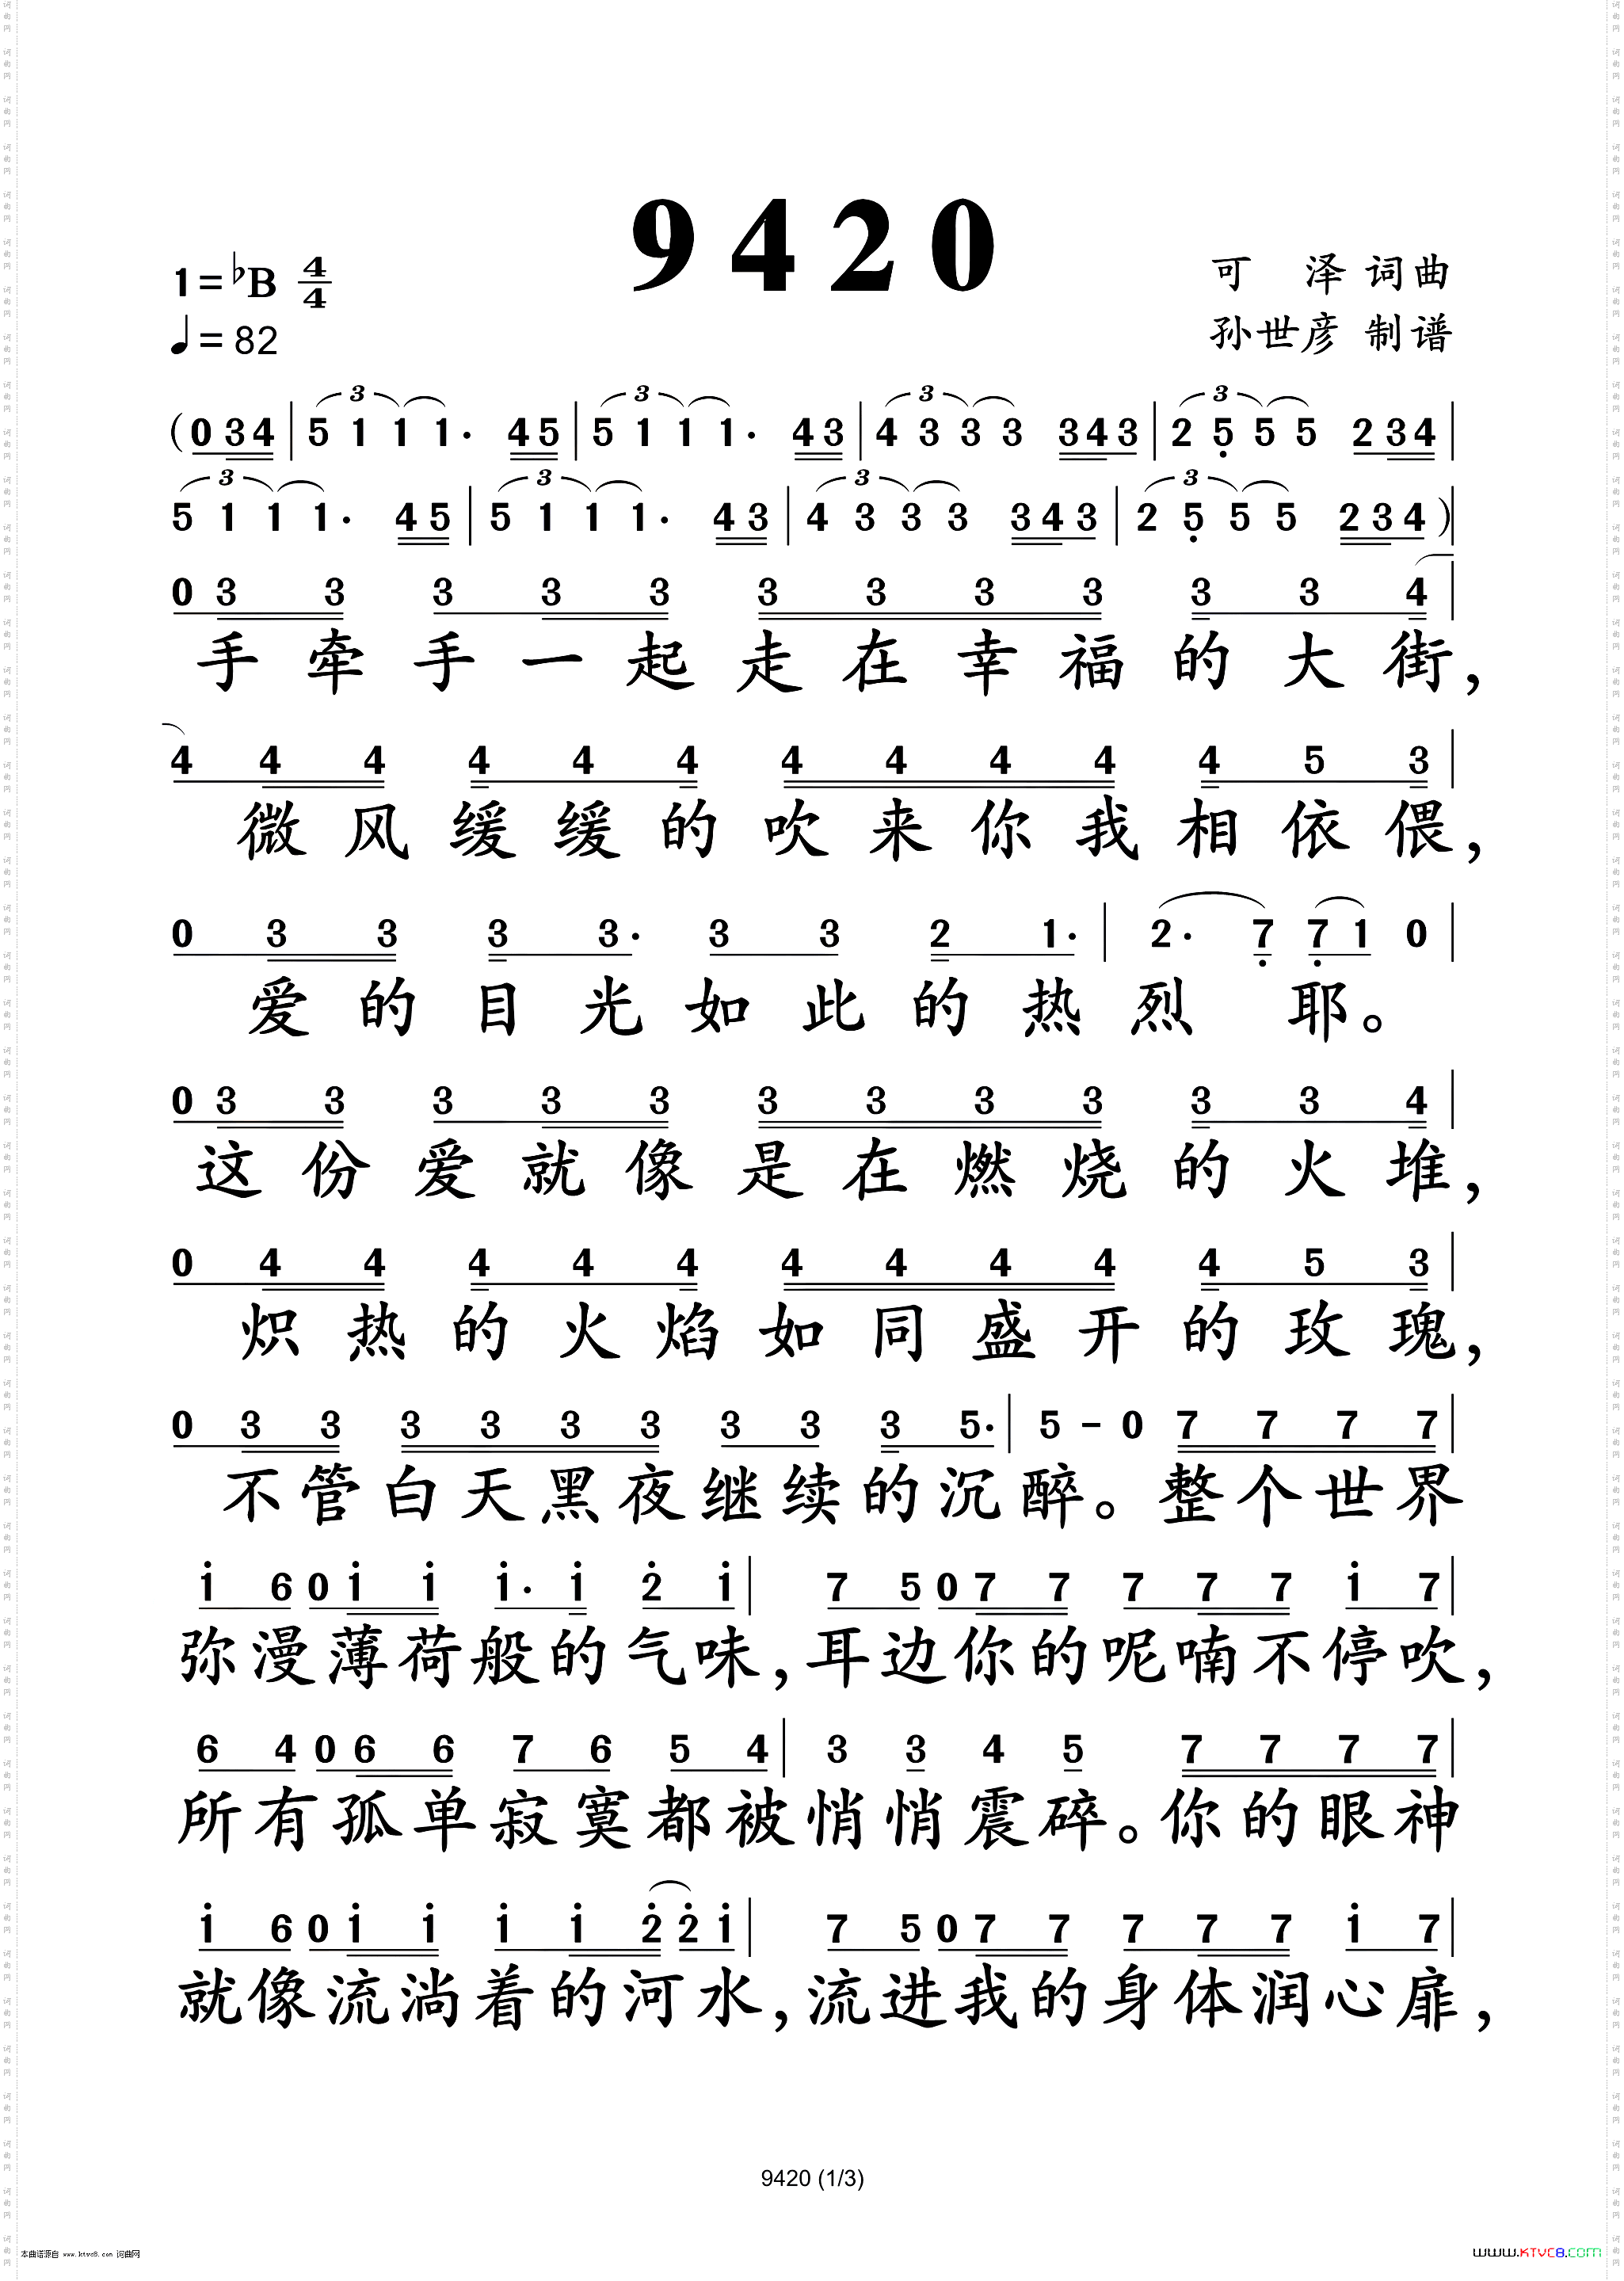 9420
1=♭B 4/4
可 泽 词曲
♩=82
孙世彦 制谱
(0 3 4 | 5 1 1 1· 4 5 | 5 1 1 1· 4 3 | 4 3 3 3 3 4 3 | 2 5 5 5 2 3 4 |
5 1 1 1· 4 5 | 5 1 1 1· 4 3 | 4 3 3 3 3 4 3 | 2 5 5 5 2 3 4) |
0 3 3 3 3 3 3 3 3 3 3 3 4 |
手牵手一起走在幸福的大街，
4 4 4 4 4 4 4 4 4 4 4 5 3 |
微风缓缓的吹来你我相依偎，
0 3 3 3 3· 3 3 2 1· | 2· 7 7 1 0 |
爱的目光如此的热烈 耶。
0 3 3 3 3 3 3 3 3 3 3 3 4 |
这份爱就像是在燃烧的火堆，
0 4 4 4 4 4 4 4 4 4 4 5 3 |
炽热的火焰如同盛开的玫瑰，
0 3 3 3 3 3 3 3 3 3 5· | 5 - 0 7 7 7 7 |
不管白天黑夜继续的沉醉。整个世界
1 6 0 1 1 1· 1 2 1 | 7 5 0 7 7 7 7 7 1 7 |
弥漫薄荷般的气味，耳边你的呢喃不停吹，
6 4 0 6 6 7 6 5 4 | 3 3 4 5 7 7 7 7 |
所有孤单寂寞都被悄悄震碎。你的眼神
1 6 0 1 1 1 1 2 2 1 | 7 5 0 7 7 7 7 7 1 7 |
就像流淌着的河水，流进我的身体润心扉，
9420 (1/3)
本曲谱源自 www.ktvc8.com 词曲网
www.KTVC8.COM